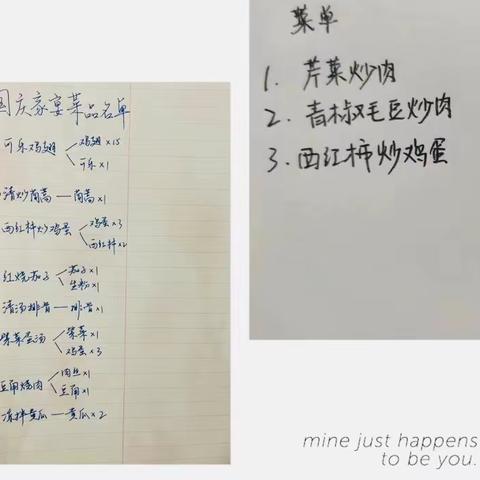 国庆家宴菜品名单
可乐鸡翅
鸡翅×15
可乐×1
清炒茼蒿——茼蒿×1
西红柿炒鸡蛋
鸡蛋×3
西红柿×2
红烧茄子
茄子×1
生粉×1
清汤排骨——排骨×1
紫菜蛋汤
紫菜×1
鸡蛋×3
豆角炖肉
肉丝×1
豆角×1
凉拌黄瓜——黄瓜×2
菜单
1. 芹菜炒肉
2. 青椒毛豆炒肉
3. 西红柿炒鸡蛋
mine just happens
to be you.